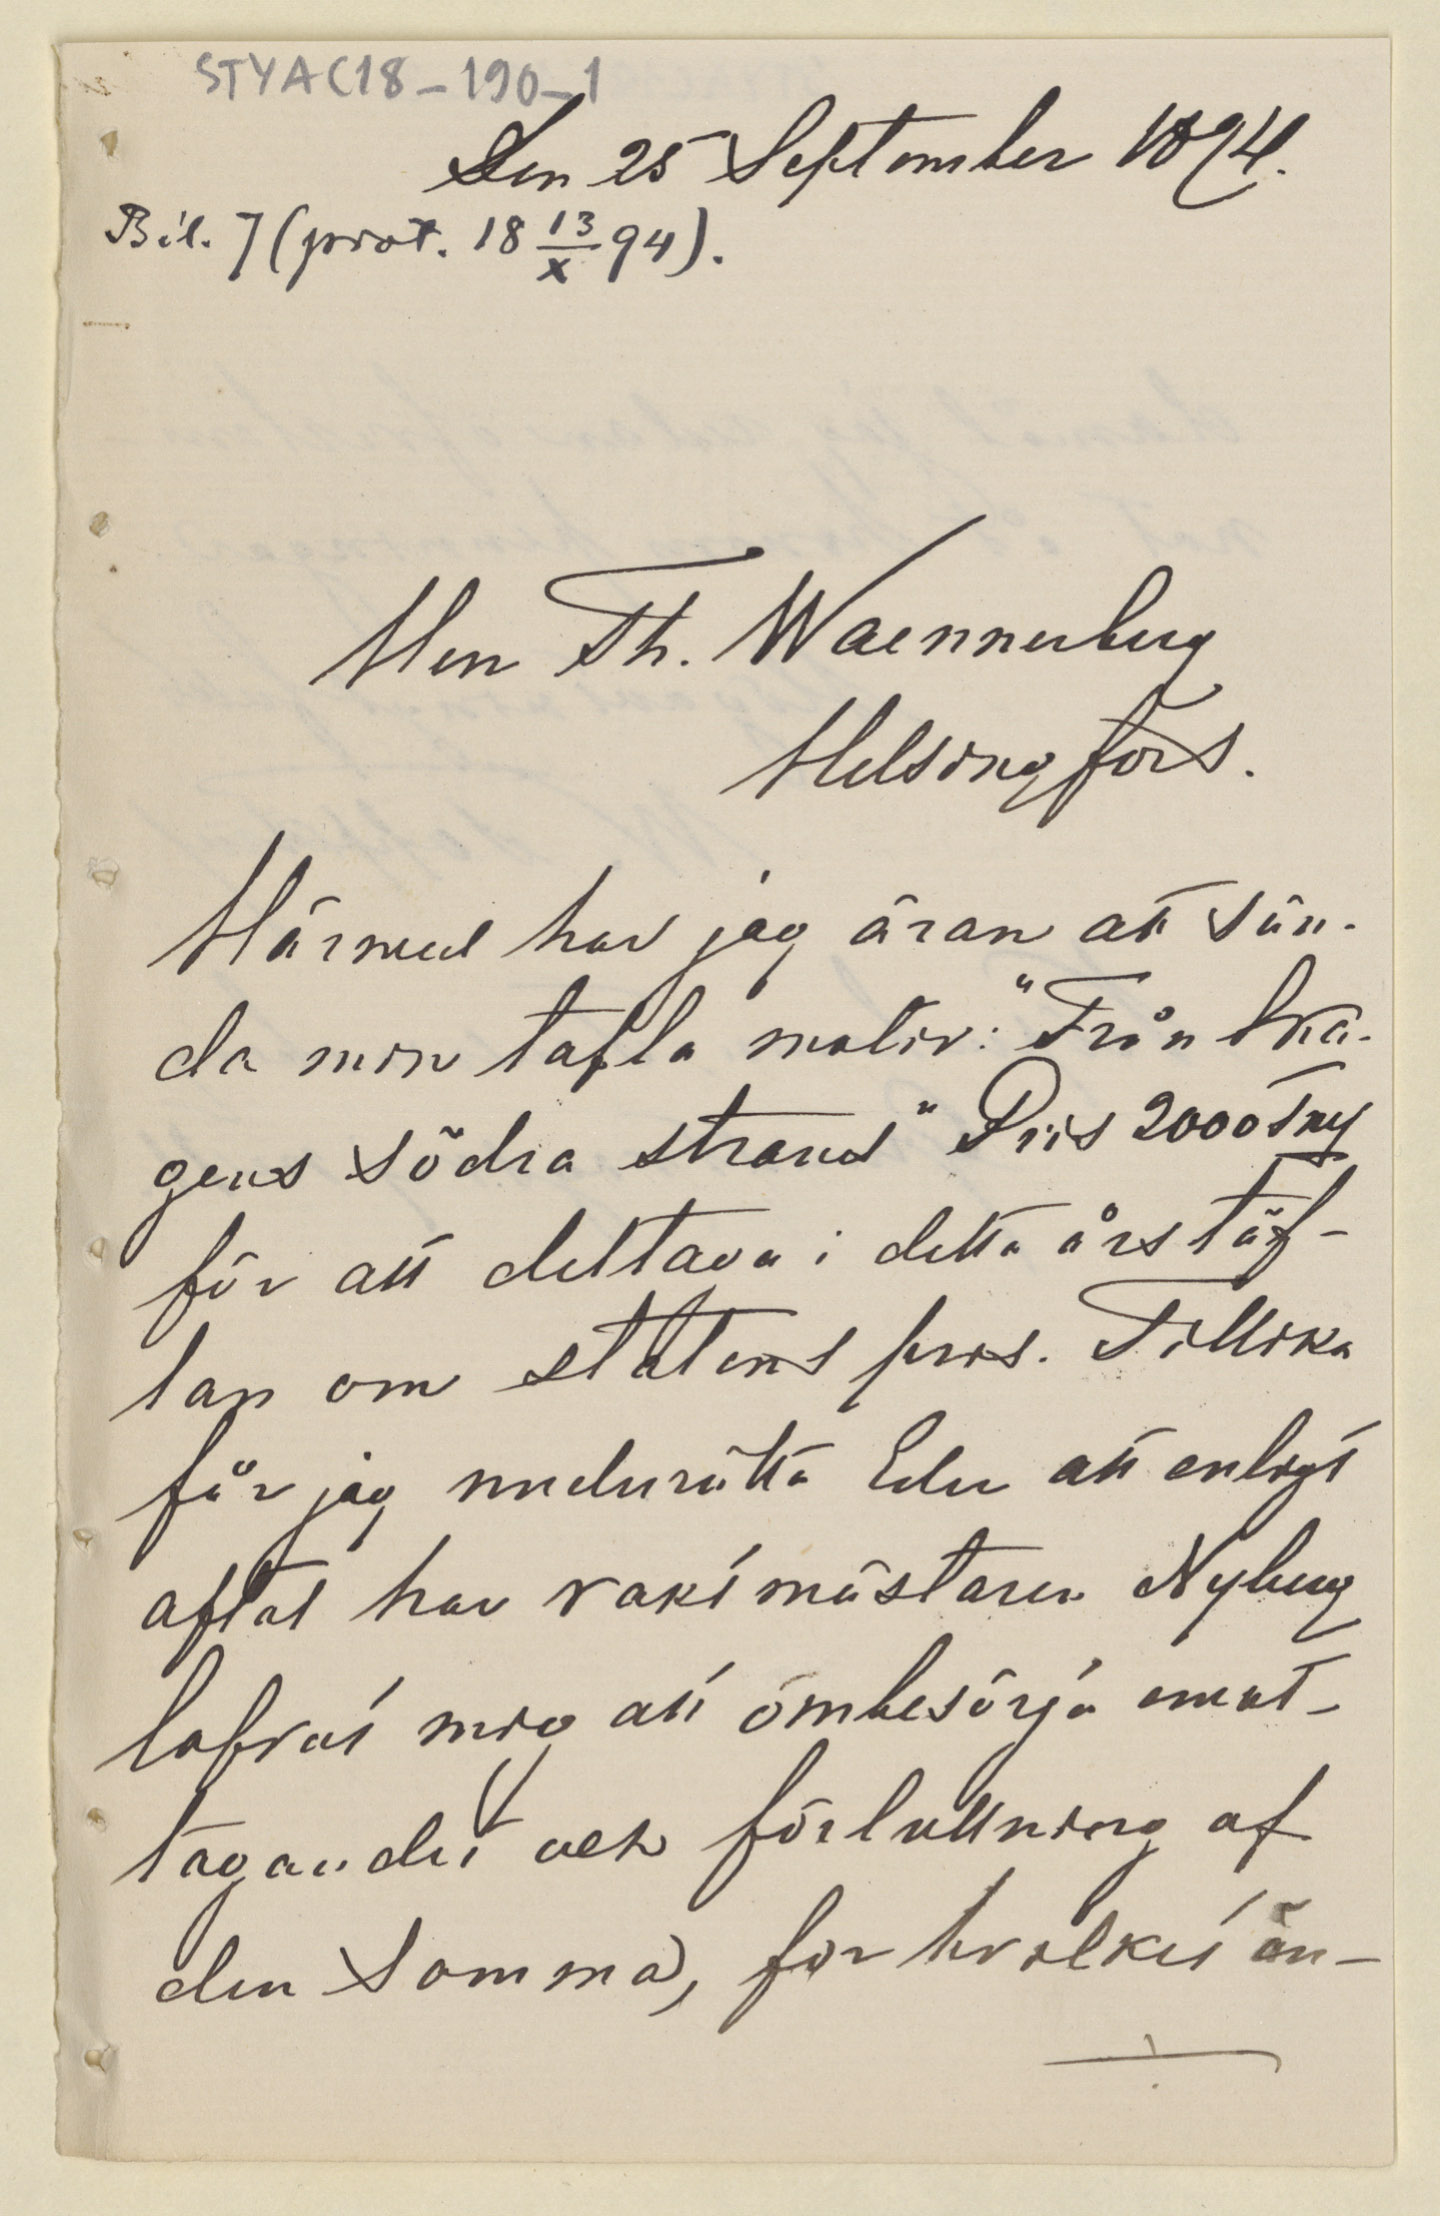 STYAC18-190-1
Den 25 September 1894.
Bil. 7 (prot. 18 13/X 94).
Herr Th. Waennerberg
Helsingfors.
Härmed har jag äran att sän-
da min tafla motiv: "Från Ska-
gens södra strand" Pris 2000 Fmk
för att deltaga i detta års täf-
lan om statens pris. Tillika
får jag underrätta Eder att enligt
aftal har vaktmästaren Nyberg
lofvat mig att ombesörja emot-
tagandet och förluttning af
den samma, for hvilket än-